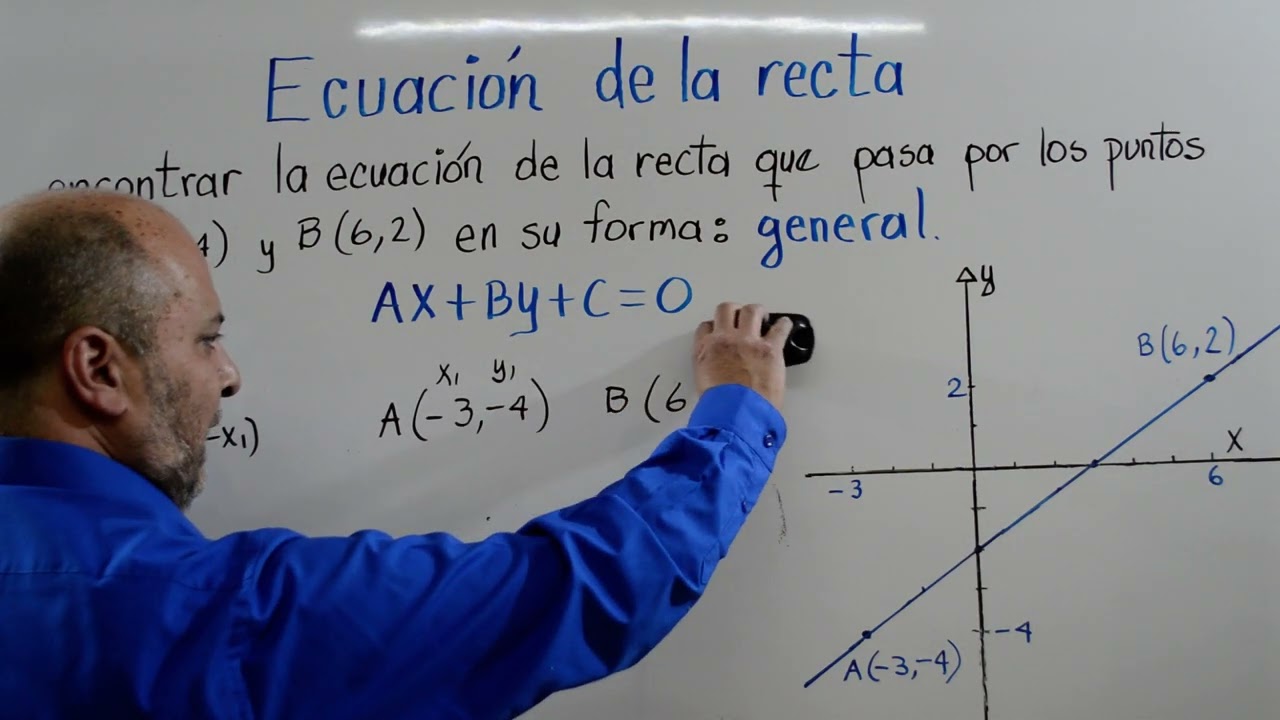 Ecuación de la recta
encontrar la ecuación de la recta que pasa por los puntos
4) y B(6,2) en su forma: general.
Ax+By+C=0
x₁ y₁
A(-3,-4) B(6
-x₁)
y
B(6,2)
2
x
-3
6
-4
A(-3,-4)